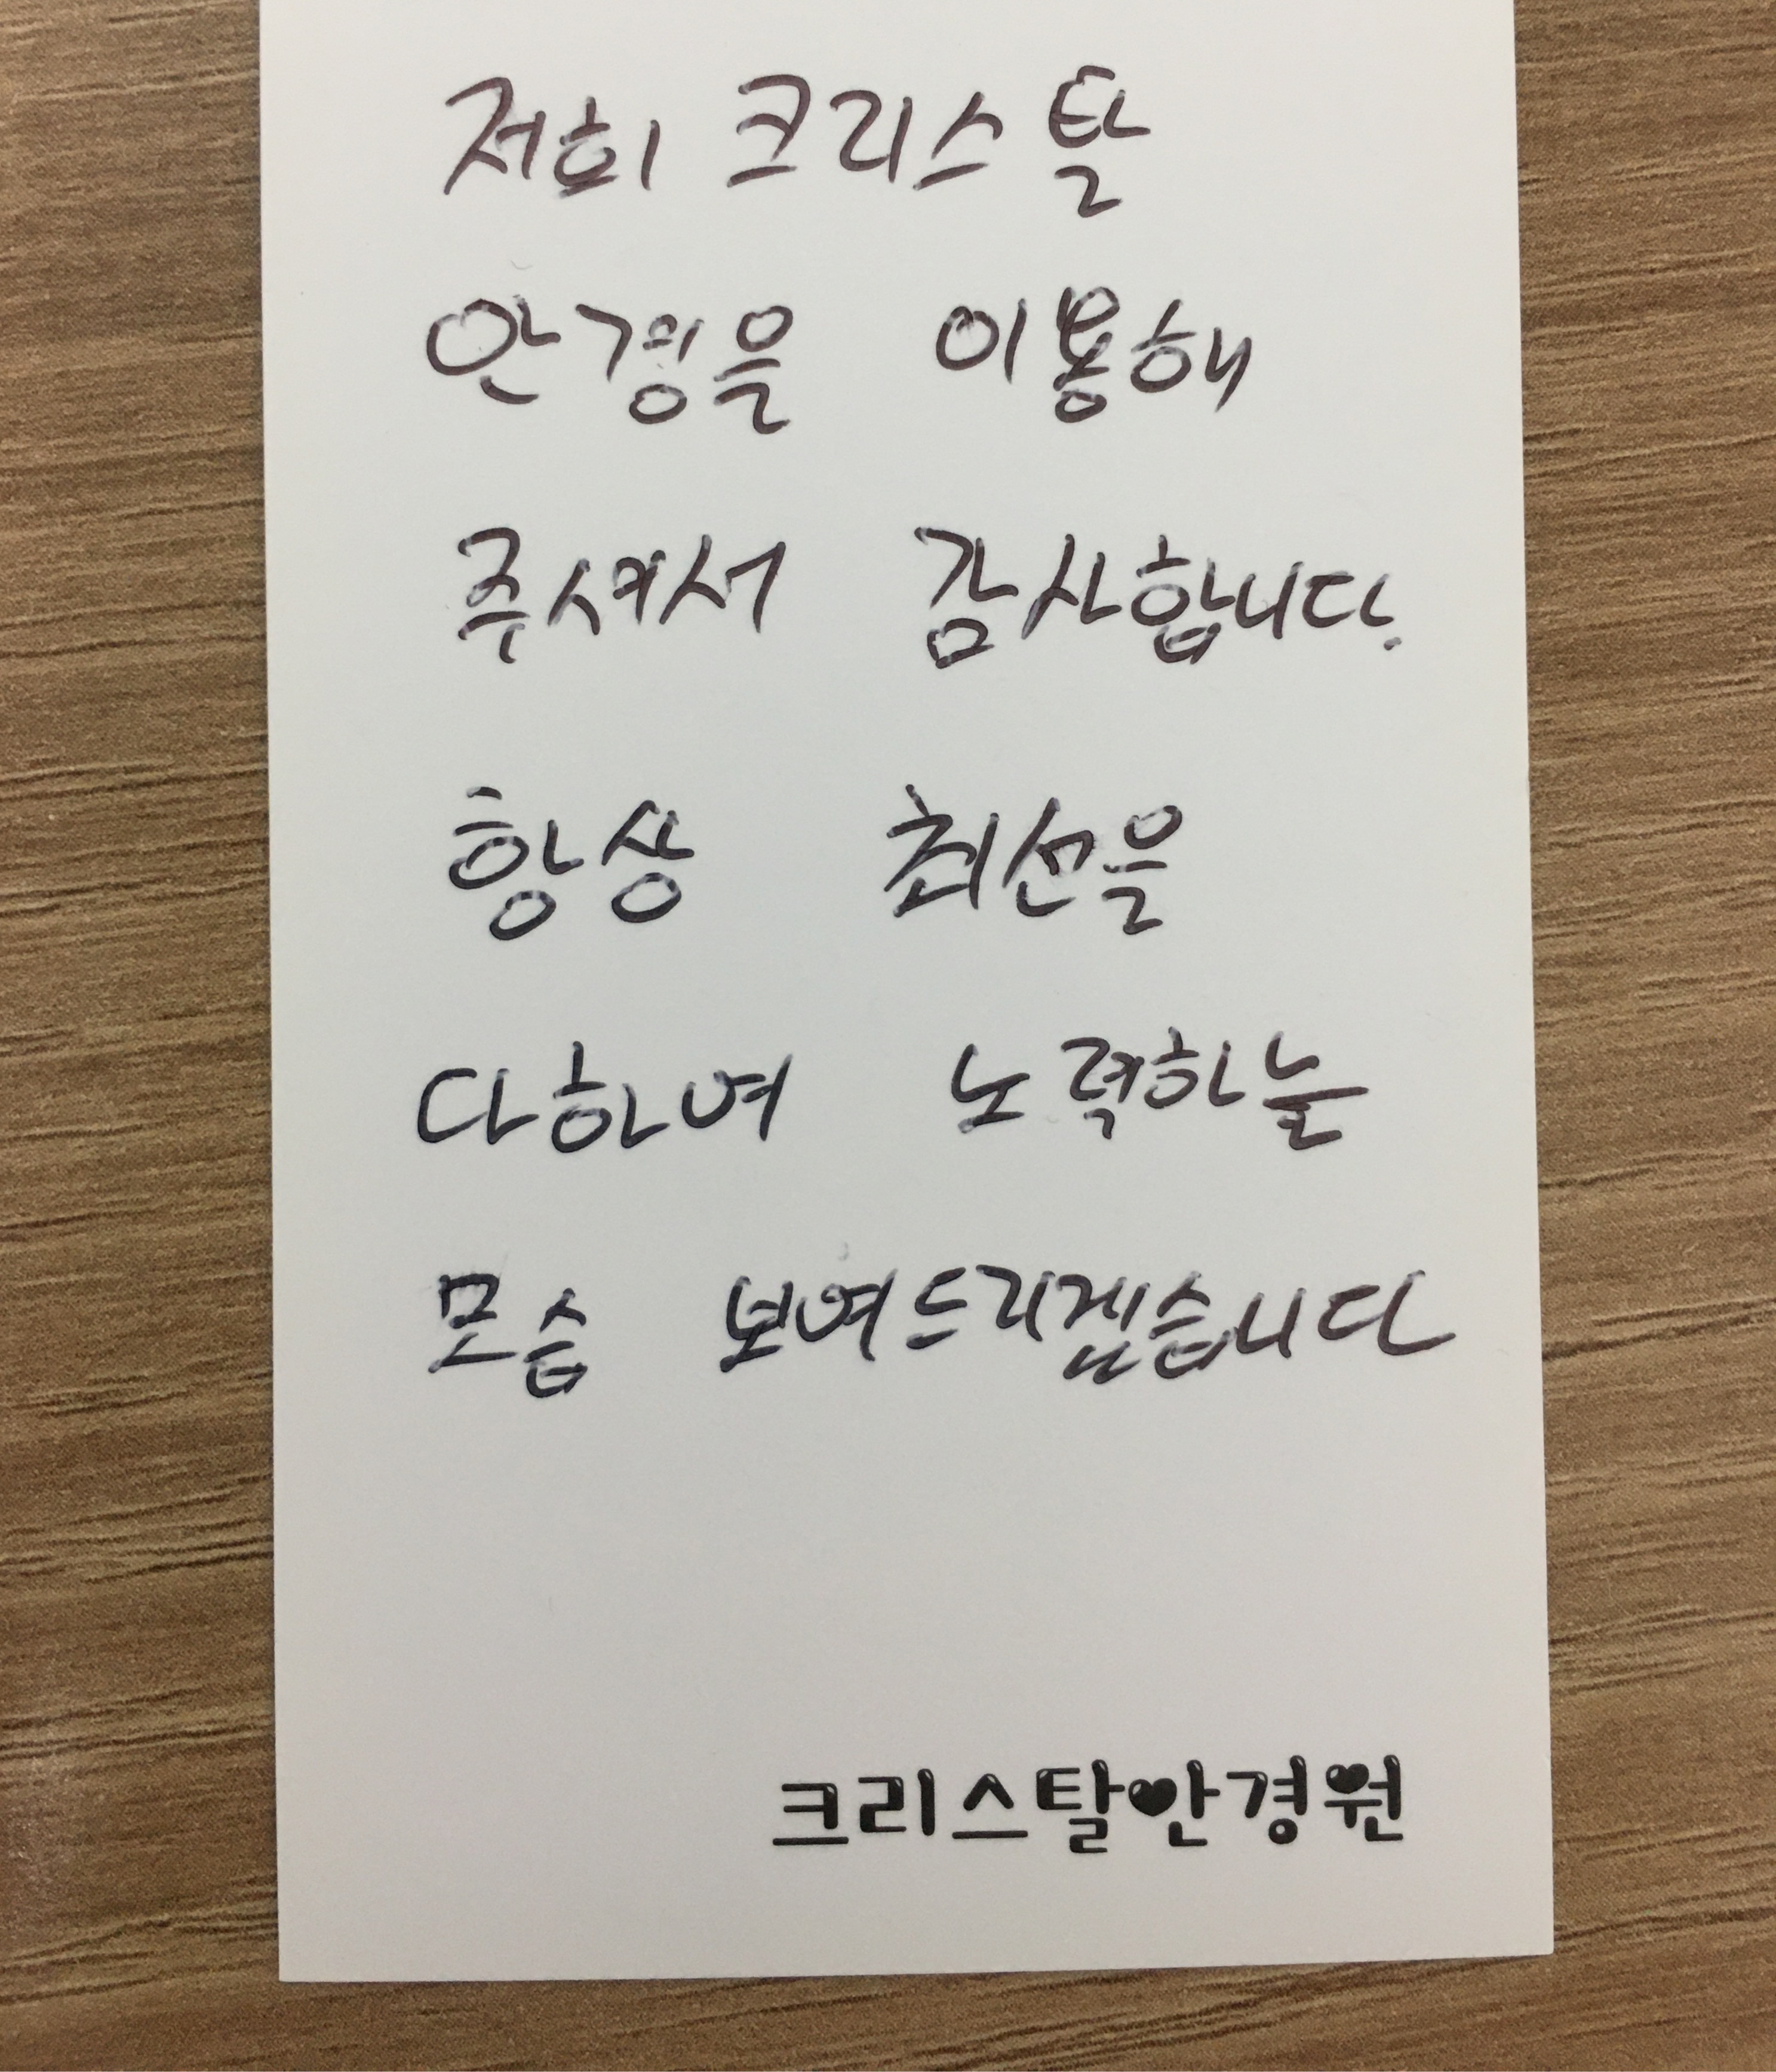 저희 크리스탈
안경을 이용해
주셔서 감사합니다.
항상 최선을
다하여 노력하는
모습 보여드리겠습니다
크리스탈안경원